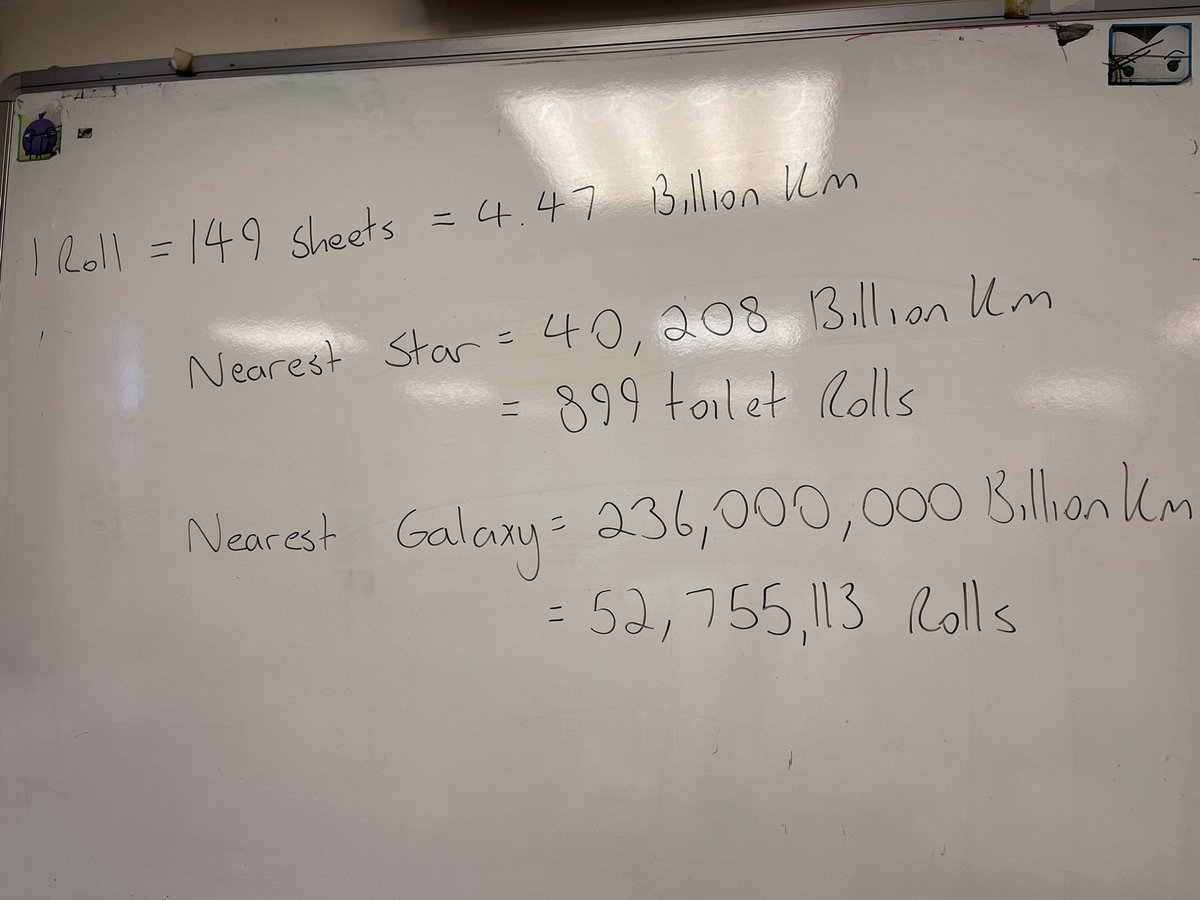 1 Roll = 149 Sheets = 4.47 Billion Km
Nearest Star = 40,208 Billion Km
= 899 toilet Rolls
Nearest Galaxy = 236,000,000 Billion Km
= 52,755,113 Rolls